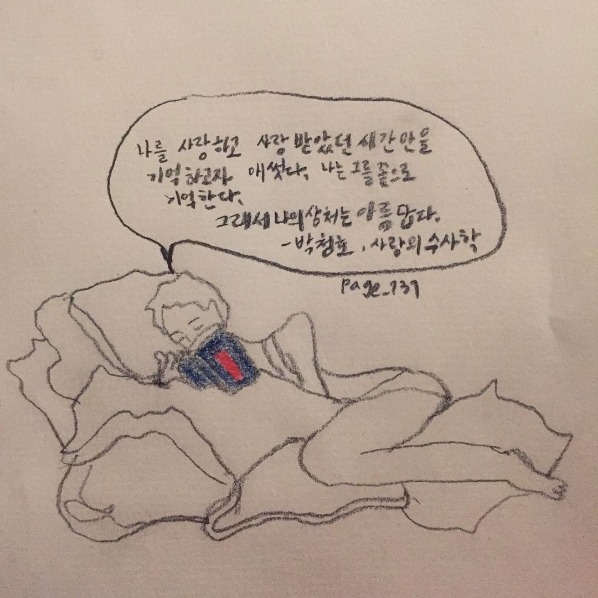 나를 사랑하고 사랑 받았던 시간만을
기억하고자 애썻다. 나는 그를 꽃으로
기억한다.
그래서 나의 상처는 아름답다.
- 박청호, 사랑의 수사학
Page_737